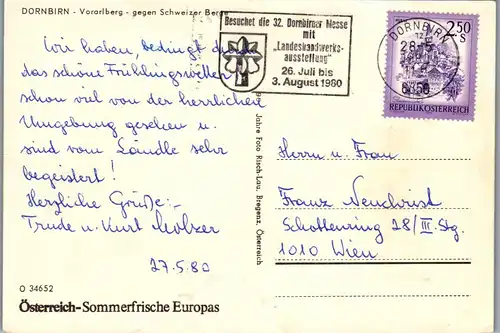 DORNBIRN - Vorarlberg - gegen Schweizer Berge
Wir haben, bedingt durch
das schöne Frühlingswetter
schon viel von der herrlichen
Umgebung gesehen u.
sind vom Ländle sehr
begeistert!
Herzliche Grüße:-
Trude u. Kurt
27.5.80
O 34652
Österreich-Sommerfrische Europas
Besuchet die 32. Dornbirner Messe
mit
„Landeshandwerks-
ausstellung"
26. Juli bis
3. August 1980
DORNBIRN
28.-5.
6850
2.50
S
REPUBLIK ÖSTERREICH
Jahre Foto Risch-Lau, Bregenz, Österreich
Herrn u. Frau
Franz Neuchrist
Schottenring 28/III. Stg.
1010 Wien